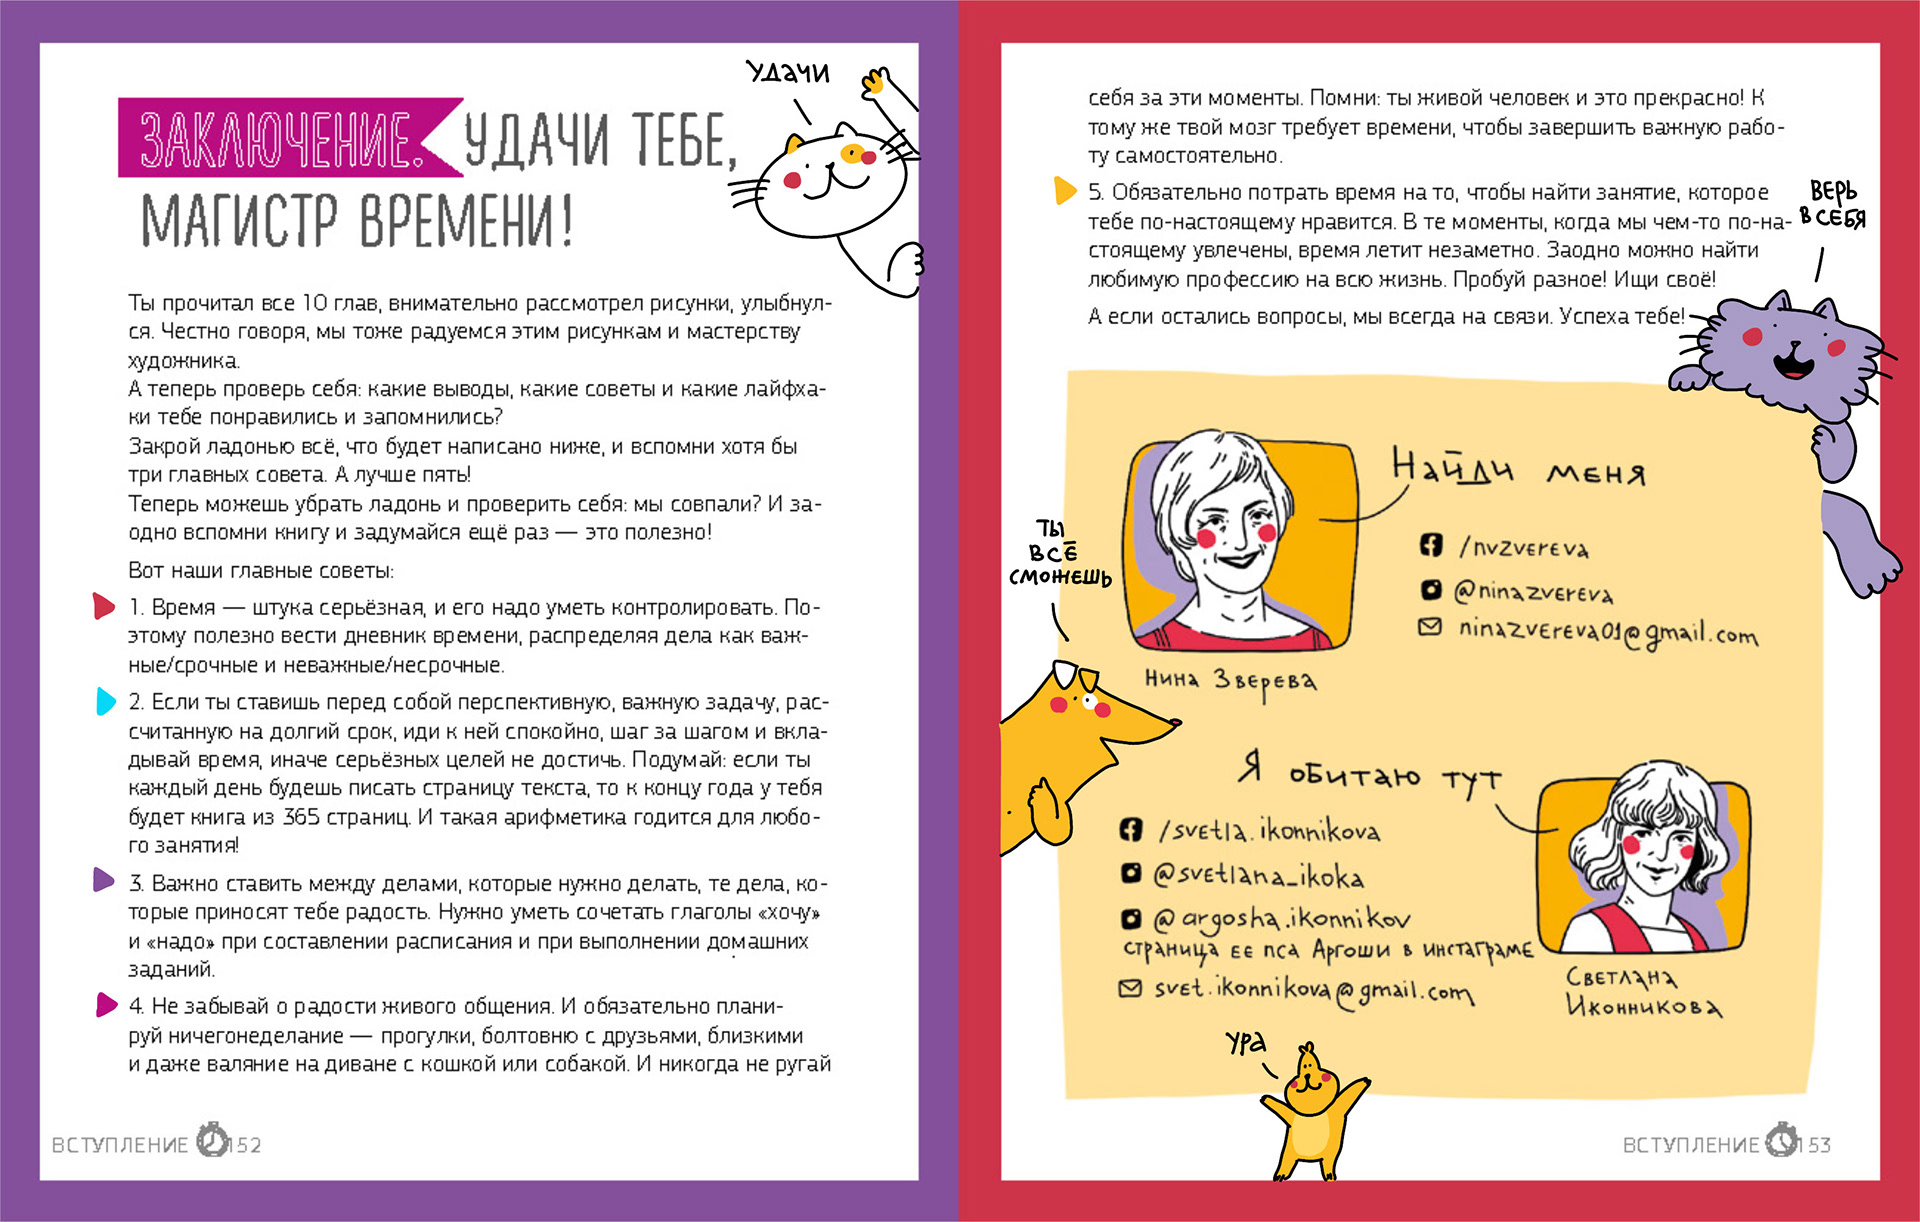 удачи
ЗАКЛЮЧЕНИЕ. УДАЧИ ТЕБЕ,
МАГИСТР ВРЕМЕНИ!
Ты прочитал все 10 глав, внимательно рассмотрел рисунки, улыбнул-
ся. Честно говоря, мы тоже радуемся этим рисункам и мастерству
художника.
А теперь проверь себя: какие выводы, какие советы и какие лайфха-
ки тебе понравились и запомнились?
Закрой ладонью всё, что будет написано ниже, и вспомни хотя бы
три главных совета. А лучше пять!
Теперь можешь убрать ладонь и проверить себя: мы совпали? И за-
одно вспомни книгу и задумайся ещё раз — это полезно!
Вот наши главные советы:
1. Время — штука серьёзная, и его надо уметь контролировать. По-
этому полезно вести дневник времени, распределяя дела как важ-
ные/срочные и неважные/несрочные.
2. Если ты ставишь перед собой перспективную, важную задачу, рас-
считанную на долгий срок, иди к ней спокойно, шаг за шагом и вкла-
дывай время, иначе серьёзных целей не достичь. Подумай: если ты
каждый день будешь писать страницу текста, то к концу года у тебя
будет книга из 365 страниц. И такая арифметика годится для любо-
го занятия!
3. Важно ставить между делами, которые нужно делать, те дела, ко-
торые приносят тебе радость. Нужно уметь сочетать глаголы «хочу»
и «надо» при составлении расписания и при выполнении домашних
заданий.
4. Не забывай о радости живого общения. И обязательно плани-
руй ничегонеделание — прогулки, болтовню с друзьями, близкими
и даже валяние на диване с кошкой или собакой. И никогда не ругай
ВСТУПЛЕНИЕ 152
себя за эти моменты. Помни: ты живой человек и это прекрасно! К
тому же твой мозг требует времени, чтобы завершить важную рабо-
ту самостоятельно.
5. Обязательно потрать время на то, чтобы найти занятие, которое
тебе по-настоящему нравится. В те моменты, когда мы чем-то по-на-
стоящему увлечены, время летит незаметно. Заодно можно найти
любимую профессию на всю жизнь. Пробуй разное! Ищи своё!
А если остались вопросы, мы всегда на связи. Успеха тебе!
ВЕРЬ
В СЕБЯ
Найди меня
/nvzvereva
@ninazvereva
ninazvereva01@gmail.com
Нина Зверева
ТЫ
ВСЁ
СМОЖЕШЬ
Я обитаю тут
/svetla.ikonnikova
@svetlana_ikoka
@argosha.ikonnikov
страница ее пса Аргоши в инстаграме
svet.ikonnikova@gmail.com
Светлана
Иконникова
ура
ВСТУПЛЕНИЕ 153